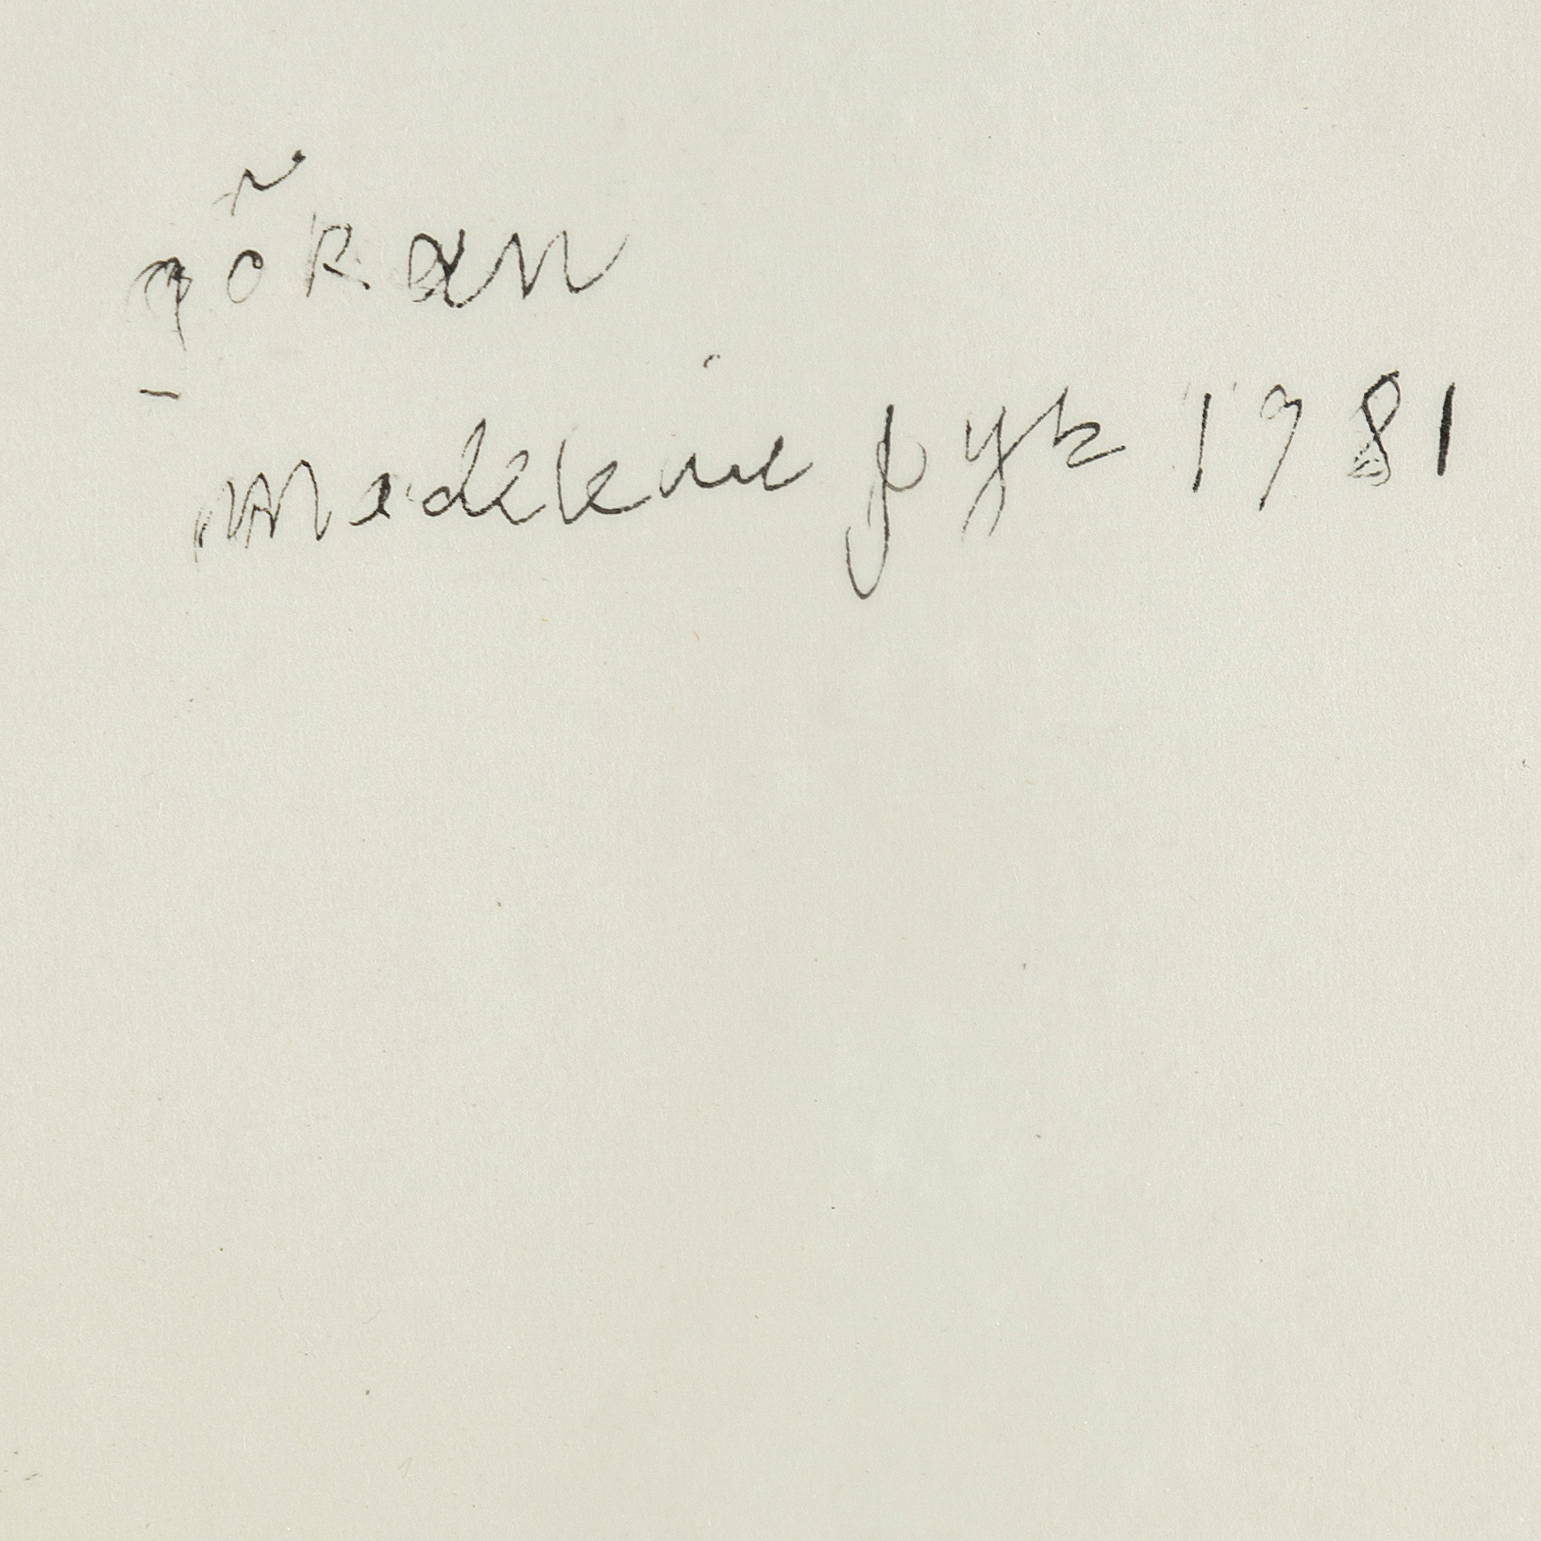 Göran
Madeleine Pyk 1981